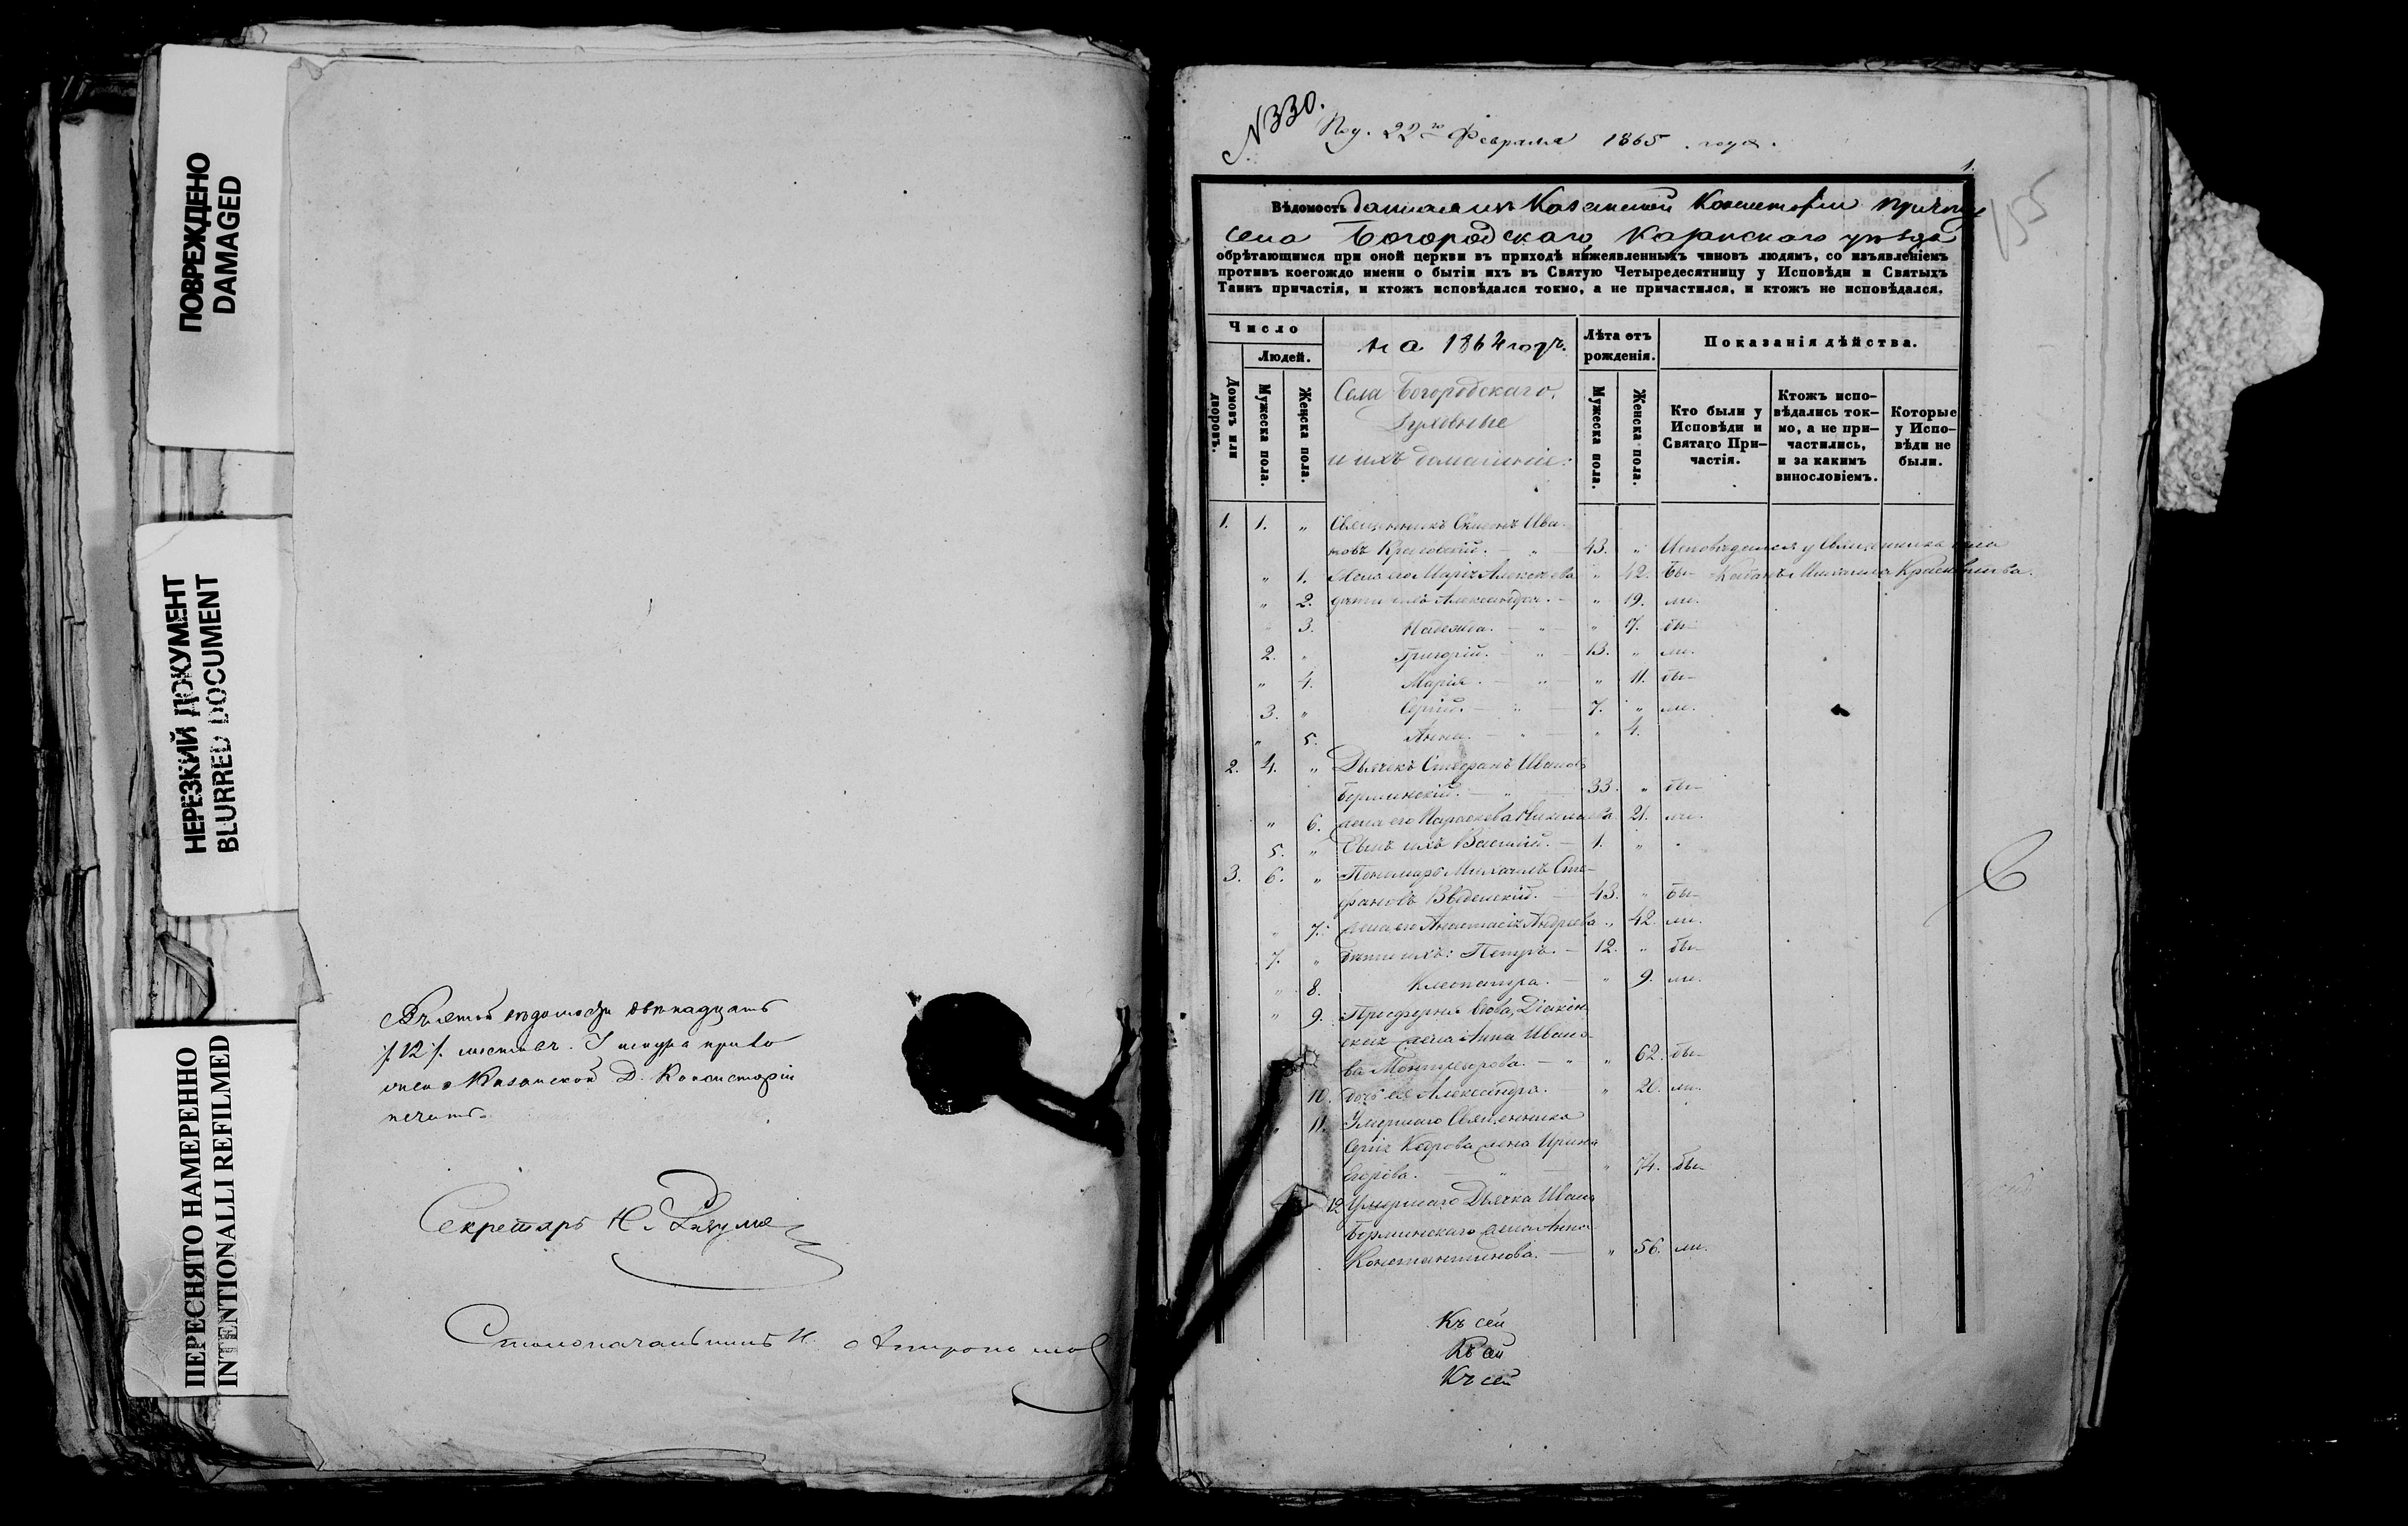 ПОВРЕЖДЕНО
DAMAGED
НЕРЕЗКИЙ ДОКУМЕНТ
BLURRED DOCUMENT
ПЕРЕСНЯТО НАМЕРЕННО
INTENTIONALLI REFILMED
двѣнадцать
/:12:/ листовъ. У шнура при
Казанской Д. Консисторіи
печать.
Секретарь Н.
Столоначальникъ Н.
N 330.
22го Февраля 1865 года.
1.
155
Вѣдомость данная изъ Казанской Консисторіи причту
села Богородскаго, Казанскаго уѣзда
обрѣтающимся при оной церкви въ приходѣ нижеявленныхъ чиновъ людямъ, со изъявленіемъ
противъ коегождо имени о бытіи ихъ въ Святую Четыредесятницу у Исповѣди и Святыхъ
Таинъ причастія, и ктожъ исповѣдался токмо, а не причастился, и ктожъ не исповѣдался.
Число
Людей.
Домовъ или дворовъ.
Мужеска пола.
Женска пола.
на 1864 годъ.
Села Богородскаго,
Духовные
и ихъ домашніе:
Лѣта отъ рожденія.
Мужеска пола.
Женска пола.
Показанія дѣйства.
Кто были у Исповѣди и Святаго При-частія.
Ктожъ испо-вѣдались ток-мо, а не при-частились, и за какимъ винословіемъ.
Которые у Испо-вѣди не были.
1. 1. " Священникъ Симеонъ Ива-
новъ . " 43. " Исповѣдался у Священника села
" 1. Жена его Марія Алексѣева " 42. бы- Михаила
" 2. дѣти ихъ Александра. " 19. ли.
" 3. Надежда. " " 7. бы-
2. " Григорій. " 13. " ли.
" 4. Марія. " " 11. бы-
3. " Сергій. " 7. " ли.
" 5. Анна. " " 4.
2. 4. " Дьячекъ Стефанъ Ивановъ
Берлинскій. " 33. " бы-
" 6. жена его Параскева Николаева 21. ли.
5. " Сынъ ихъ Василій. 1. "
3. 6. " Пономарь Михаилъ Сте-
фановъ Введенскій. 43. " бы-
" 7. жена его Анастасія Андреева " 42. ли.
7. " дѣти ихъ: Петръ. 12. " бы-
" 8. Клеопатра. " 9. ли.
" 9. вдова, Діакон-
ская жена Анна Ивано-
ва . " " 62. бы-
10. дочь ея Александра. " 20. ли.
11. Умершаго Священника
Сергія Кедрова жена Ирина
Егорова. " " 74. бы-
12. Умершаго Дьячка Ивана
Берлинскаго жена Анна
Константинова. " 56. ли.
Къ сей
Къ сей
Къ сей